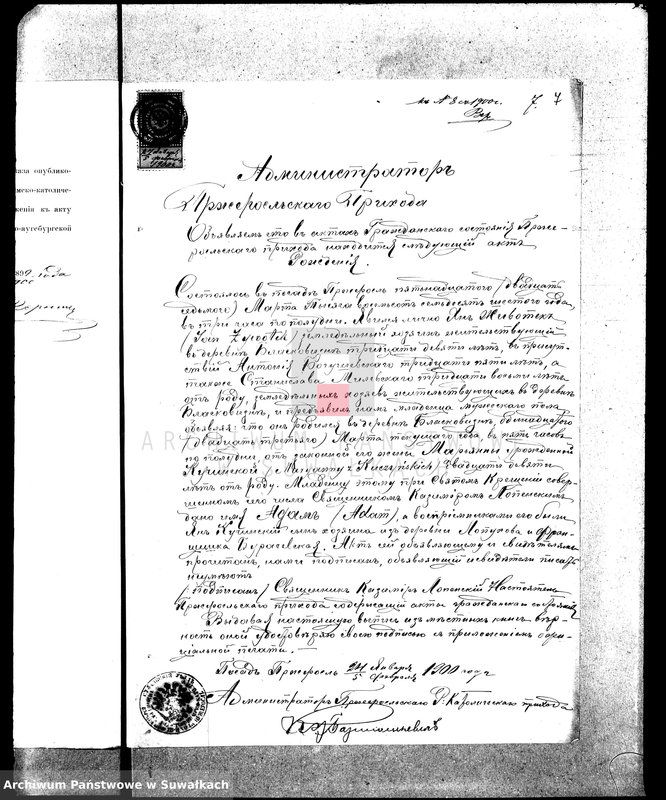 къ № 8 од 1900 г.
7. 7
Администраторъ
Пржеросльскаго Прихода
Объявляемъ что въ актахъ Гражданскаго состоянія Прже-
росльскаго прихода находится слѣдующій актъ
Рожденія.
Состоялось въ посадѣ Пржеросль пятьнадцатаго /двадцать
седьмого/ Марта Тысяча восемьсотъ семьдесятъ шестого года,
въ три часа по полудни. Явился лично Янъ Животекъ
/Jan Żywotek/ земледѣльный хозяинъ жительствующій
въ деревнѣ Бласковизнѣ тридцати девяти лѣтъ, въ присут-
ствіи Антонія тридцати пяти лѣтъ, а
также Станислава Милевскаго тридцати восьми лѣтъ
отъ роду, земледѣльныхъ хозяевъ жительствующихъ въ деревнѣ
Бласковизнѣ, и предъявилъ намъ младенца мужескаго пола,
объявляя: что онъ родился въ деревнѣ Бласковизнѣ, одинадцатаго
/двадцать третьяго/ Марта текущаго года въ пять часовъ
по полудни, отъ законной его жены Маріянны урожденной
Кучинской /Maryanny z Kuczyńskich/ двадцати девяти
лѣтъ отъ роду. Младенцу этому при Святомъ Крещеніи совер-
шенномъ сего числа Священникомъ Казиміромъ Лопенскимъ
дано имя Адамъ /Adam/, а воспріемниками его были
Янъ Кучинскій сынъ хозяина изъ деревни Лопухова и Фран-
цишка Бураевская. Актъ сей объявляющему и свидѣтелямъ
прочитанъ, нами подписанъ, объявляющій и свидѣтели писать
неумѣютъ
/Подписалъ/ Священникъ Казиміръ Лопенскій Настоятель
Пржеросльскаго прихода содержащій акты гражданскаго состоянія
Выдавая настоящую выпись изъ мѣстныхъ книгъ вѣр-
ность оной удостовѣряю своею подписью съ приложеніемъ оффи-
ціальной печати.
Посадъ Пржеросль 24 Января / 5 Февраля 1900 года
Администраторъ Пржеросльскаго Р. Католическаго прихода
каза опублико-
мско-католиче-
женія къ акту
о-аугсбургской
899 года
Archiwum Państwowe w Suwałkach